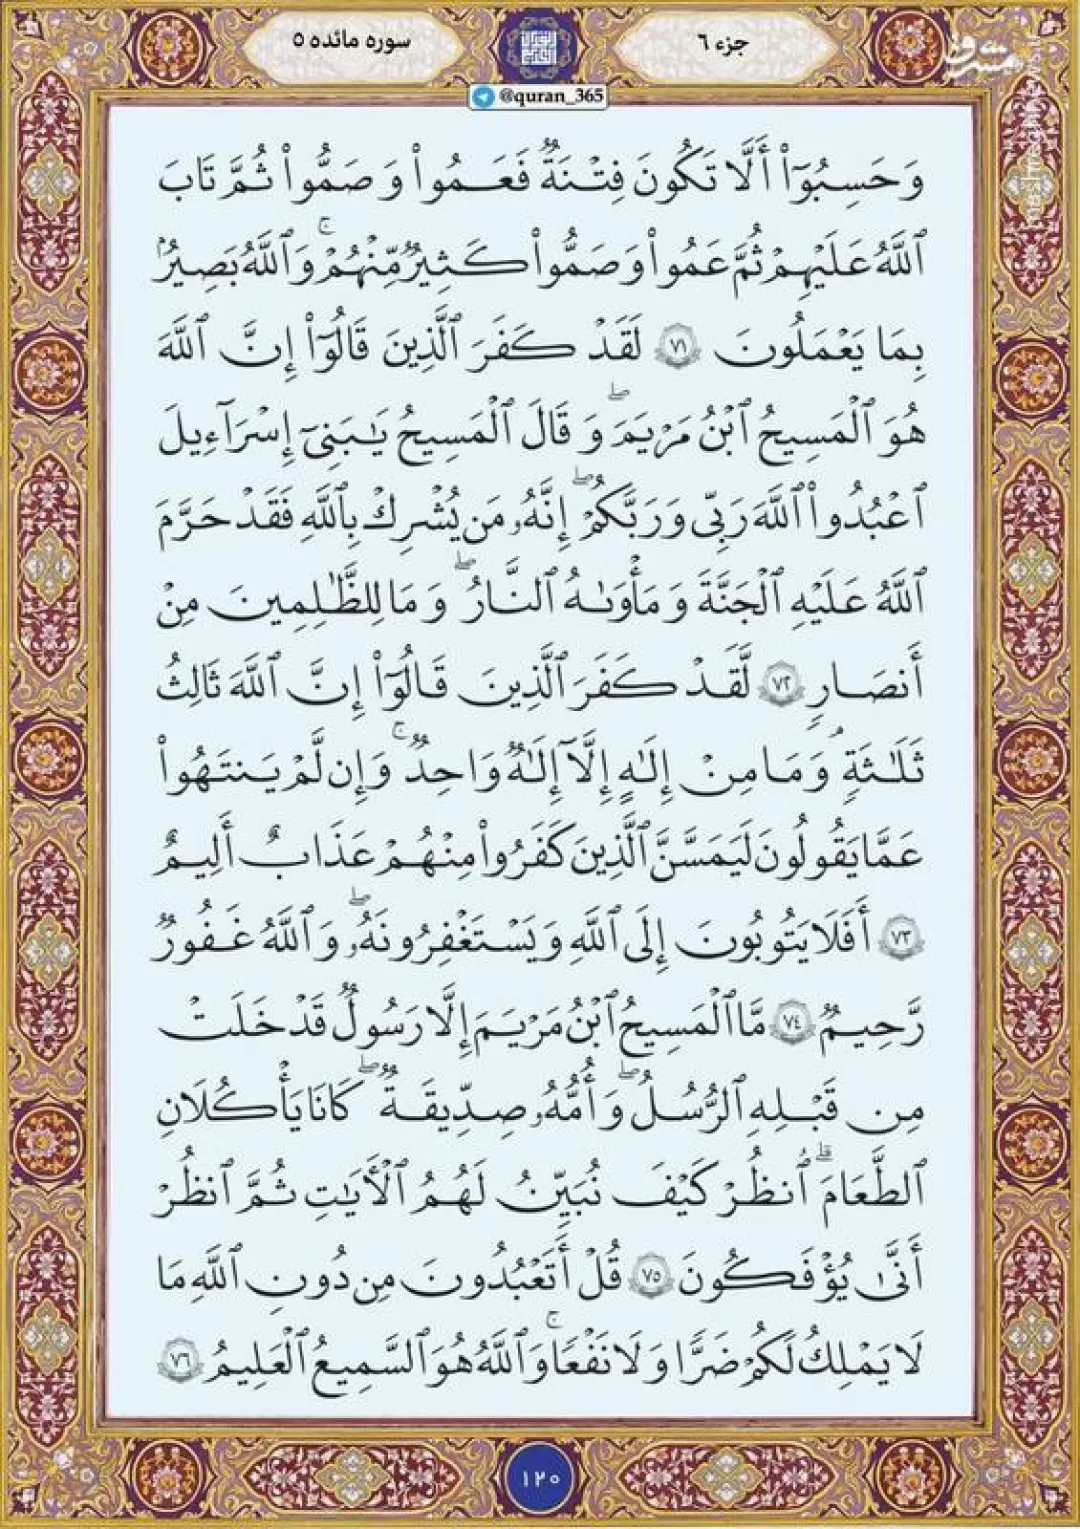 جزء ۶
سوره مائده ۵
@quran_365
وَحَسِبُوٓا۟ أَلَّا تَكُونَ فِتْنَةٌ فَعَمُوا۟ وَصَمُّوا۟ ثُمَّ تَابَ
ٱللَّهُ عَلَيْهِمْ ثُمَّ عَمُوا۟ وَصَمُّوا۟ كَثِيرٌ مِّنْهُمْ ۚ وَٱللَّهُ بَصِيرٌۢ
بِمَا يَعْمَلُونَ ۷۱ لَقَدْ كَفَرَ ٱلَّذِينَ قَالُوٓا۟ إِنَّ ٱللَّهَ
هُوَ ٱلْمَسِيحُ ٱبْنُ مَرْيَمَ ۖ وَقَالَ ٱلْمَسِيحُ يَـٰبَنِىٓ إِسْرَٰٓءِيلَ
ٱعْبُدُوا۟ ٱللَّهَ رَبِّى وَرَبَّكُمْ ۖ إِنَّهُۥ مَن يُشْرِكْ بِٱللَّهِ فَقَدْ حَرَّمَ
ٱللَّهُ عَلَيْهِ ٱلْجَنَّةَ وَمَأْوَىٰهُ ٱلنَّارُ ۖ وَمَا لِلظَّـٰلِمِينَ مِنْ
أَنصَارٍ ۷۲ لَّقَدْ كَفَرَ ٱلَّذِينَ قَالُوٓا۟ إِنَّ ٱللَّهَ ثَالِثُ
ثَلَـٰثَةٍ ۘ وَمَا مِنْ إِلَـٰهٍ إِلَّآ إِلَـٰهٌ وَٰحِدٌ ۚ وَإِن لَّمْ يَنتَهُوا۟
عَمَّا يَقُولُونَ لَيَمَسَّنَّ ٱلَّذِينَ كَفَرُوا۟ مِنْهُمْ عَذَابٌ أَلِيمٌ
۷۳ أَفَلَا يَتُوبُونَ إِلَى ٱللَّهِ وَيَسْتَغْفِرُونَهُۥ ۖ وَٱللَّهُ غَفُورٌ
رَّحِيمٌ ۷۴ مَّا ٱلْمَسِيحُ ٱبْنُ مَرْيَمَ إِلَّا رَسُولٌ قَدْ خَلَتْ
مِن قَبْلِهِ ٱلرُّسُلُ ۖ وَأُمُّهُۥ صِدِّيقَةٌ ۖ كَانَا يَأْكُلَانِ
ٱلطَّعَامَ ۗ ٱنظُرْ كَيْفَ نُبَيِّنُ لَهُمُ ٱلْـَٔايَـٰتِ ثُمَّ ٱنظُرْ
أَنَّىٰ يُؤْفَكُونَ ۷۵ قُلْ أَتَعْبُدُونَ مِن دُونِ ٱللَّهِ مَا
لَا يَمْلِكُ لَكُمْ ضَرًّا وَلَا نَفْعًا ۚ وَٱللَّهُ هُوَ ٱلسَّمِيعُ ٱلْعَلِيمُ ۷۶
۱۲۰